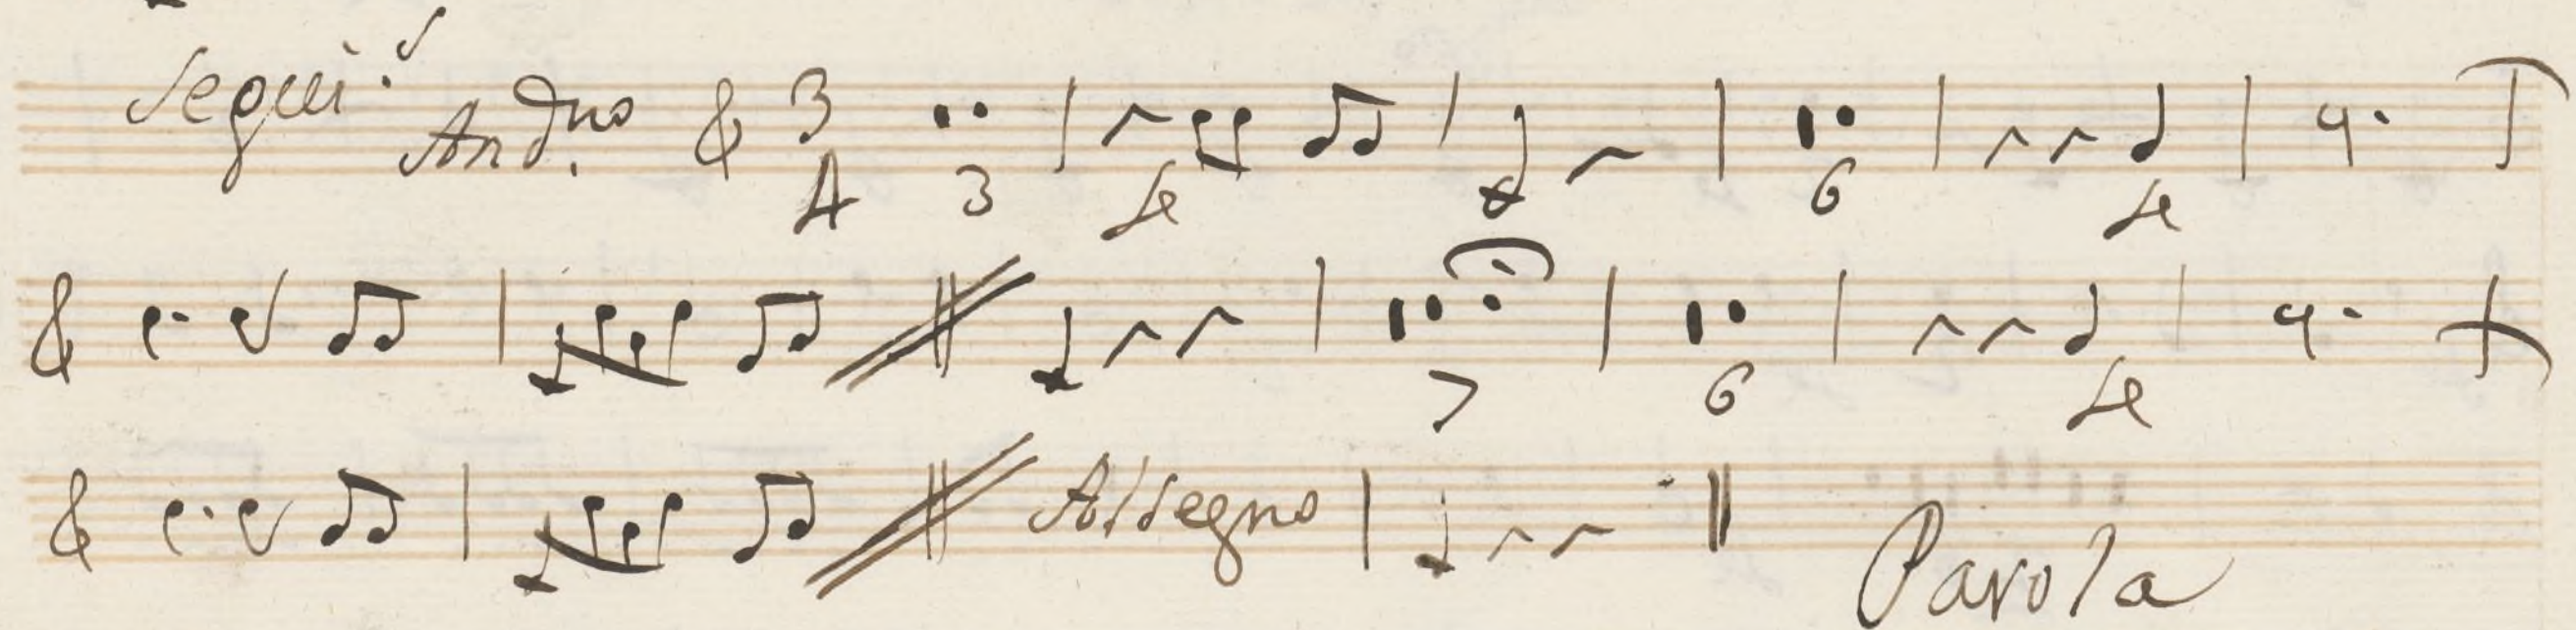 Segui:
And.no 3
4 3 fe 6 fe
7 6 fe
Al Segno
Parola